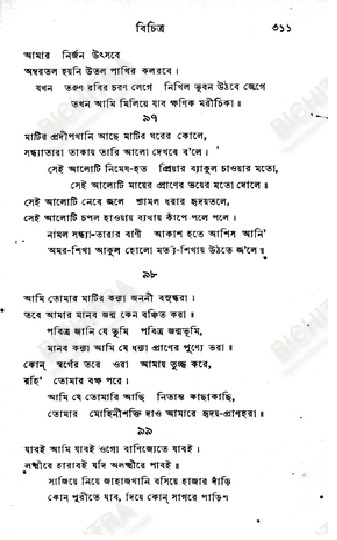 বিচিত্র ৩১১
আমার নির্জন উৎসবে
অম্বরতল হয়নি উতল পাখির কলরবে।
যখন তরুণ রবির চরণ লেগে নিখিল ভুবন উঠবে জেগে
তখন আমি মিলিয়ে যাব ক্ষণিক মরীচিকা॥
৯৭
মাটির প্রদীপখানি আছে মাটির ঘরের কোলে,
সন্ধ্যাতারা তাকায় তারি আলো দেখবে ব'লে।
সেই আলোটি নিমেষ-হত প্রিয়ার ব্যাকুল চাওয়ার মতো,
সেই আলোটি মায়ের প্রাণের ভয়ের মতো দোলে॥
সেই আলোটি নেবে জ্বলে শ্যামল ধরার হৃদয়তলে,
সেই আলোটি চপল হাওয়ায় ব্যথায় কাঁপে পলে পলে।
নামল সন্ধ্যা-তারার বাণী আকাশ হতে আশিস আনি'
অমর-শিখা আকুল হোলো মর্ত্য-শিখায় উঠতে জ্ব'লে॥
৯৮
আমি তোমার মাটির কন্যা জননী বসুন্ধরা।
তবে আমার মানব জন্ম কেন বঞ্চিত করা॥
পবিত্র জানি যে তুমি পবিত্র জন্মভূমি,
মানব কন্যা আমি যে ধন্যা প্রাণের পুণ্যে ভরা॥
কোন্ স্বর্গের তরে ওরা আমায় তুচ্ছ করে,
রহি' তোমার বক্ষ পরে।
আমি যে তোমারি আছি নিতান্ত কাছাকাছি,
তোমার মোহিনীশক্তি দাও আমারে হৃদয়-প্রাণহরা॥
৯৯
যাবই আমি যাবই ওগো বাণিজ্যেতে যাবই।
লক্ষ্মীরে হারাবই যদি অলক্ষ্মীরে পাবই॥
সাজিয়ে নিয়ে জাহাজখানি বসিয়ে হাজার দাঁড়ি
কোন্ পুরীতে যাব, দিয়ে কোন্ সাগরে পাড়ি॥
BICHITRA